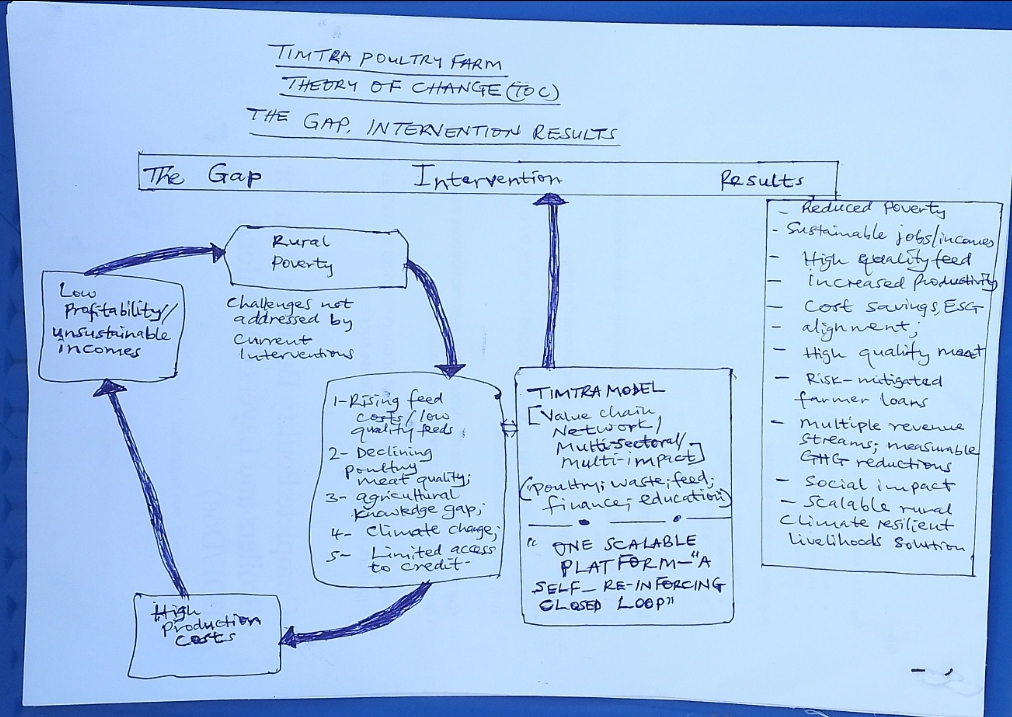 TIMTRA POULTRY FARM
THEORY OF CHANGE (TOC)
THE GAP, INTERVENTION RESULTS
The Gap Intervention Results
Low
Profitability/
unsustainable
incomes
Rural
Poverty
Challenges not
addressed by
Current
Interventions
1-Rising feed
costs/low
quality feeds;
2- Declining
poultry
meat quality;
3- agricultural
knowledge gap;
4- Climate change;
5- Limited access
to credit-
High
Production
Costs
TIMTRA MODEL
[Value chain
Network/
Multi-Sectoral/
Multi-impact]
(Poultry; waste; feed;
finance; education)
" ONE SCALABLE
PLATFORM-"A
SELF-RE-INFORCING
CLOSED LOOP"
- Reduced Poverty
- Sustainable jobs/incomes
- High quality feed
- increased Productivity
- Cost savings, ESG
- alignment;
- High quality meat
- Risk-mitigated
farmer loans
- Multiple revenue
streams; measurable
GHG reductions
- Social impact
- Scalable rural
Climate resilient
livelihoods Solution